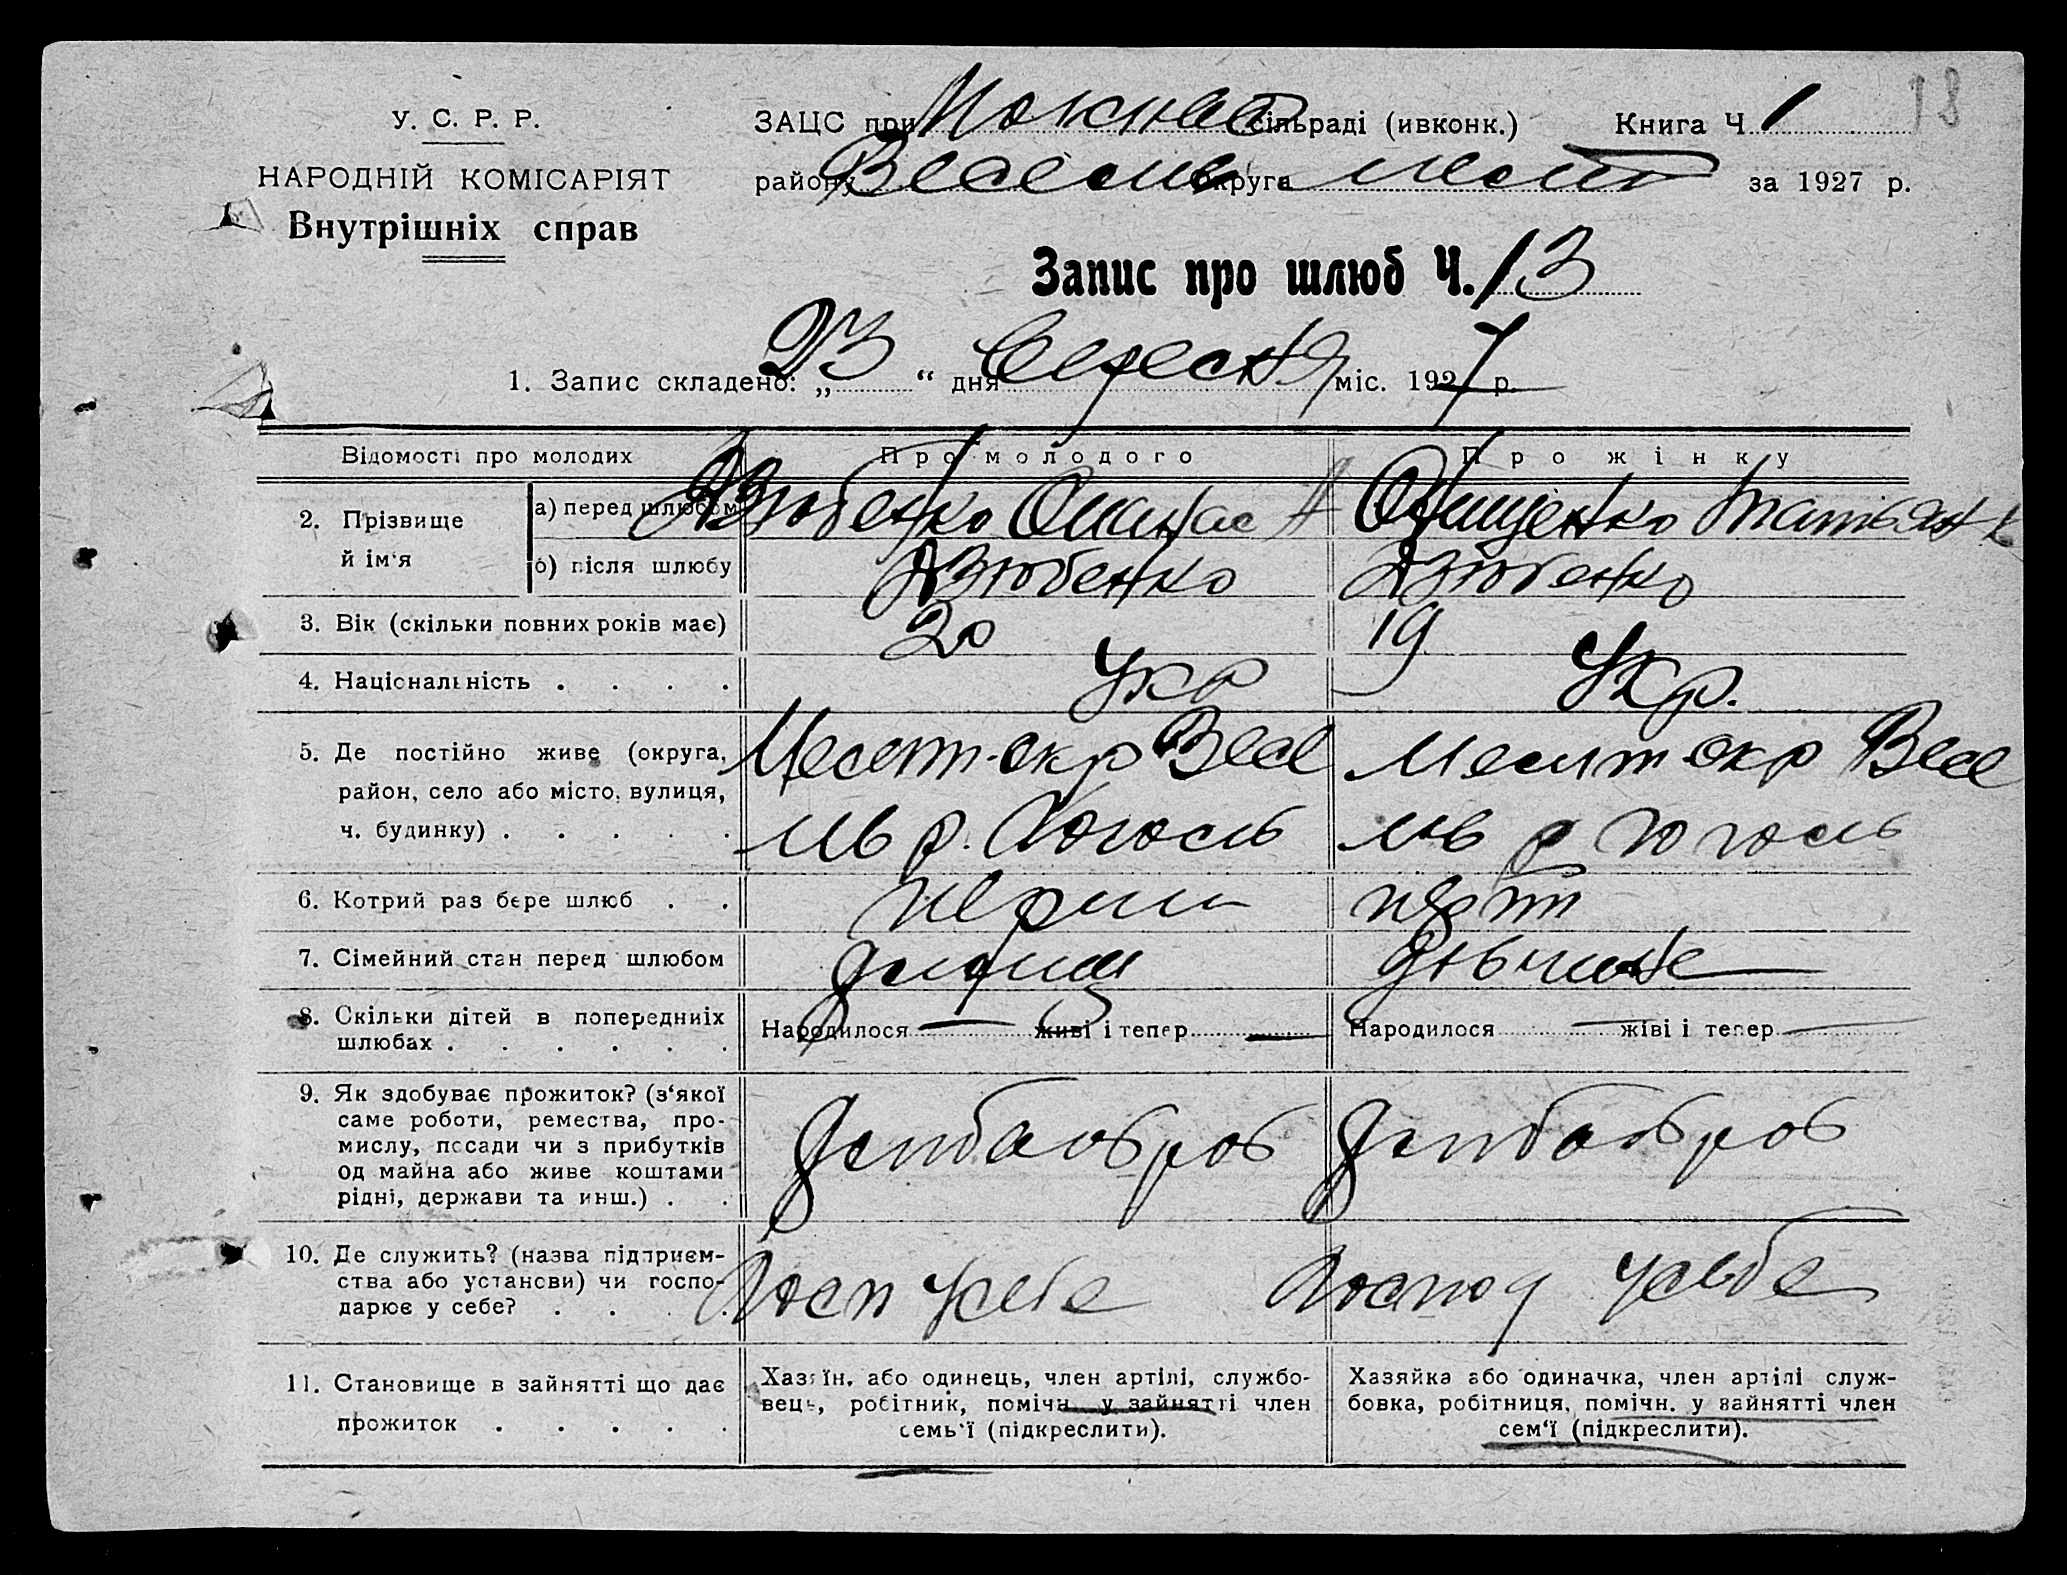 18
У. С. Р. Р.
НАРОДНІЙ КОМІСАРІЯТ
Внутрішніх справ
ЗАЦС при сільраді (ивконк.) Книга Ч 1
району округа за 1927 р.
Запис про шлюб Ч. 13
1. Запис складено: „23“ дня Вересня міс. 1927 р.
Відомості про молодих
Про молодого
Про жінку
2. Прізвище й ім‘я
а) перед шлюбом Дзюбенко Онищенко
б) після шлюбу Дзюбенко Дзюбенко
3. Вік (скільки повних років має) 20 19
4. Національність . . . . Укр Укр.
5. Де постійно живе (округа, окр Весе окр Весе
район, село або місто, вулиця, р. Гоголь р Гоголь
ч. будинку) . . . . .
6. Котрий раз бере шлюб . . перши
7. Сімейний стан перед шлюбом
8. Скільки дітей в попередниіх Народилося — живі і тепер — Народилося — жіві і тепер —
шлюбах . . . . . .
9. Як здобуває прожиток? (з‘якої
саме роботи, ремества, про-
мислу, посади чи з прибутків
од майна або живе коштами
рідні, держави та инш.) . .
10. Де служить? (назва підприєм-
ства або установи) чи госпо- Госп Усебе Господ Усебе
дарює у себе? . . . .
11. Становище в зайнятті що дає
прожиток . . . . .
Хазяїн, або одинець, член артілі, службо-
вець, робітник, помічн. у зайнятті член
семь‘ї (підкреслити).
Хазяйка або одиначка, член артілі служ-
бовка, робітниця, помічн. у зайнятті член
сем‘ї (підкреслити).